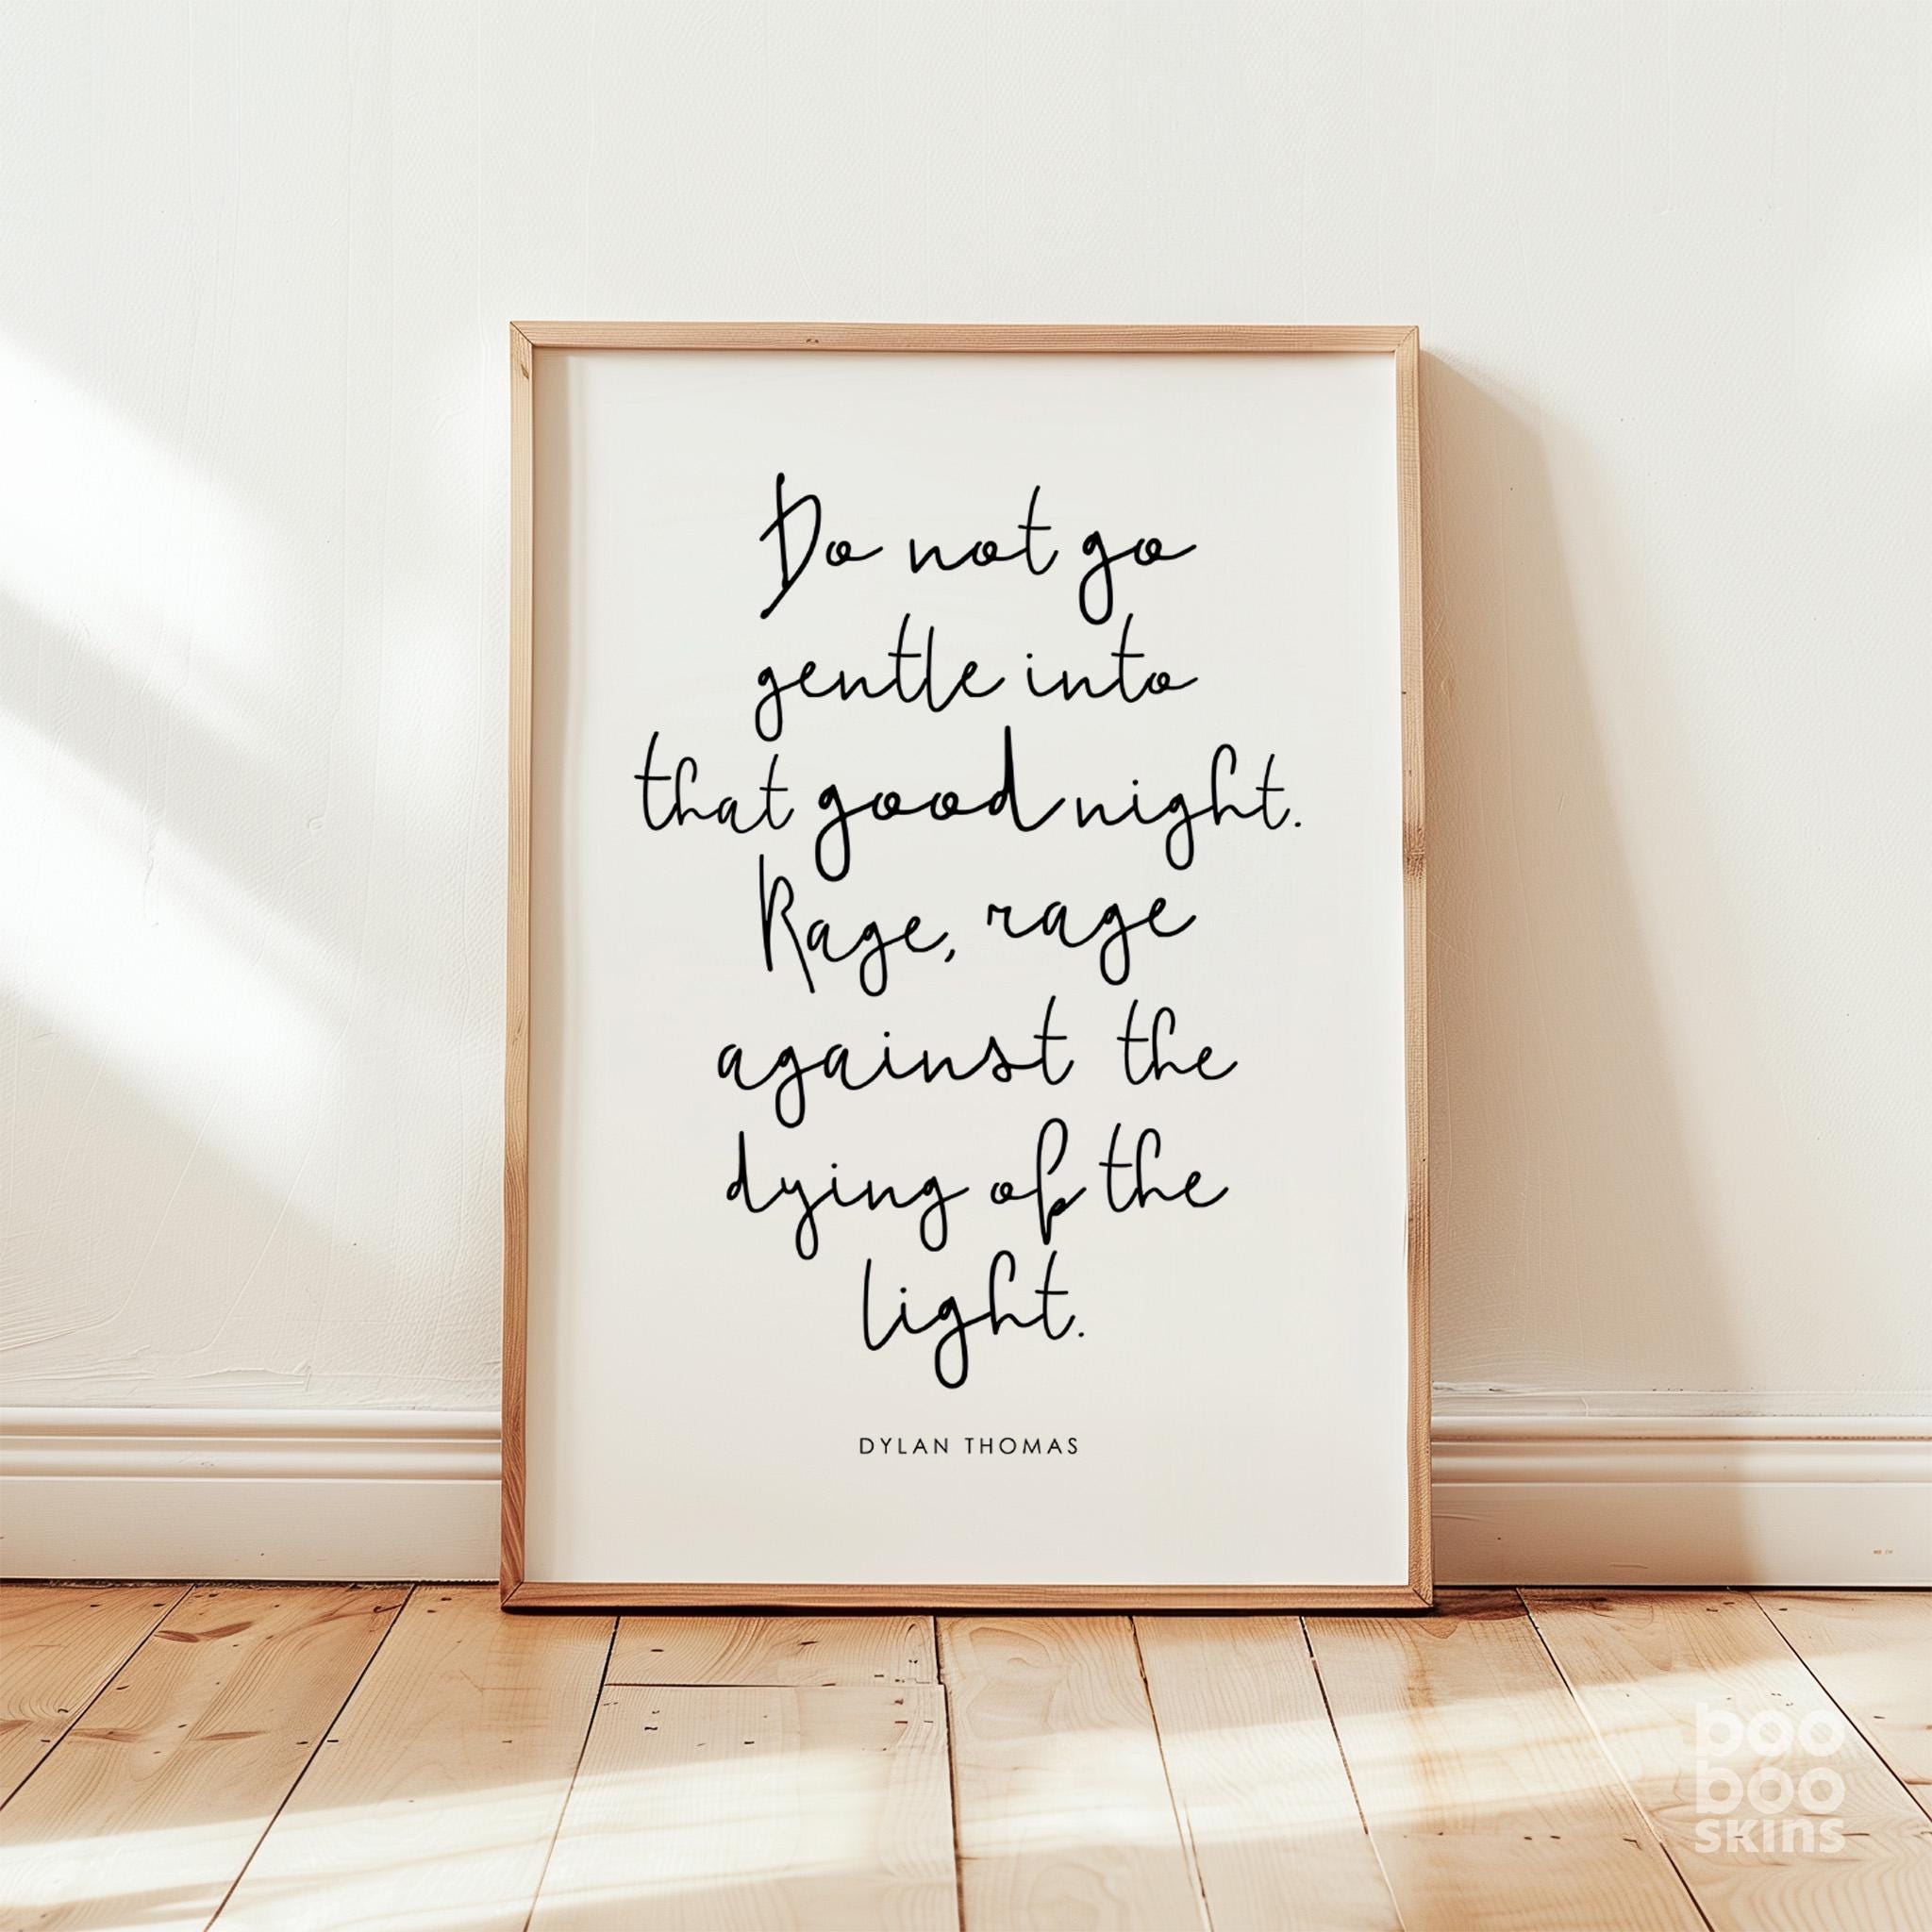 Do not go
gentle into
that good night.
Rage, rage
against the
dying of the
light.
DYLAN THOMAS
boo
boo
skins